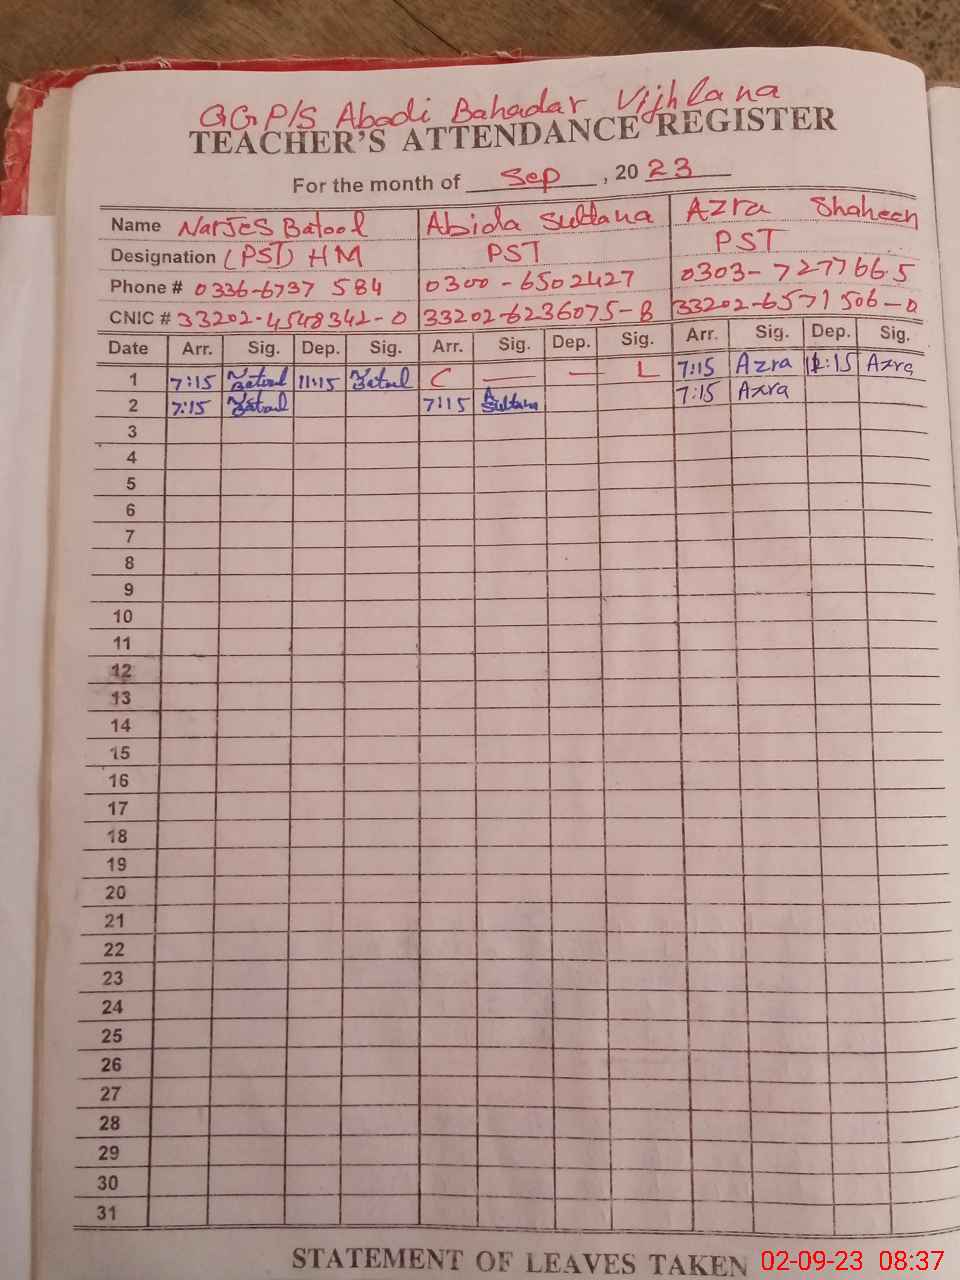 GGP/S Abadi Bahadar Vijhlana
TEACHER'S ATTENDANCE REGISTER
For the month of Sep, 2023
Name Narjes Batool Abida Sultana Azra Shaheen
Designation (PST) HM PST PST
Phone # 0336-6737 584 0300-6502427 0303-7277665
CNIC # 33202-4548342-0 33202-6236075-8 33202-6571506-0
Date Arr. Sig. Dep. Sig. Arr. Sig. Dep. Sig. Arr. Sig. Dep. Sig.
1 7:15 Batool 11:15 Batool C — — L 7:15 Azra 11:15 Azra
2 7:15 Batool 7:15 A Sultana 7:15 Azra
3
4
5
6
7
8
9
10
11
12
13
14
15
16
17
18
19
20
21
22
23
24
25
26
27
28
29
30
31
STATEMENT OF LEAVES TAKEN
02-09-23 08:37